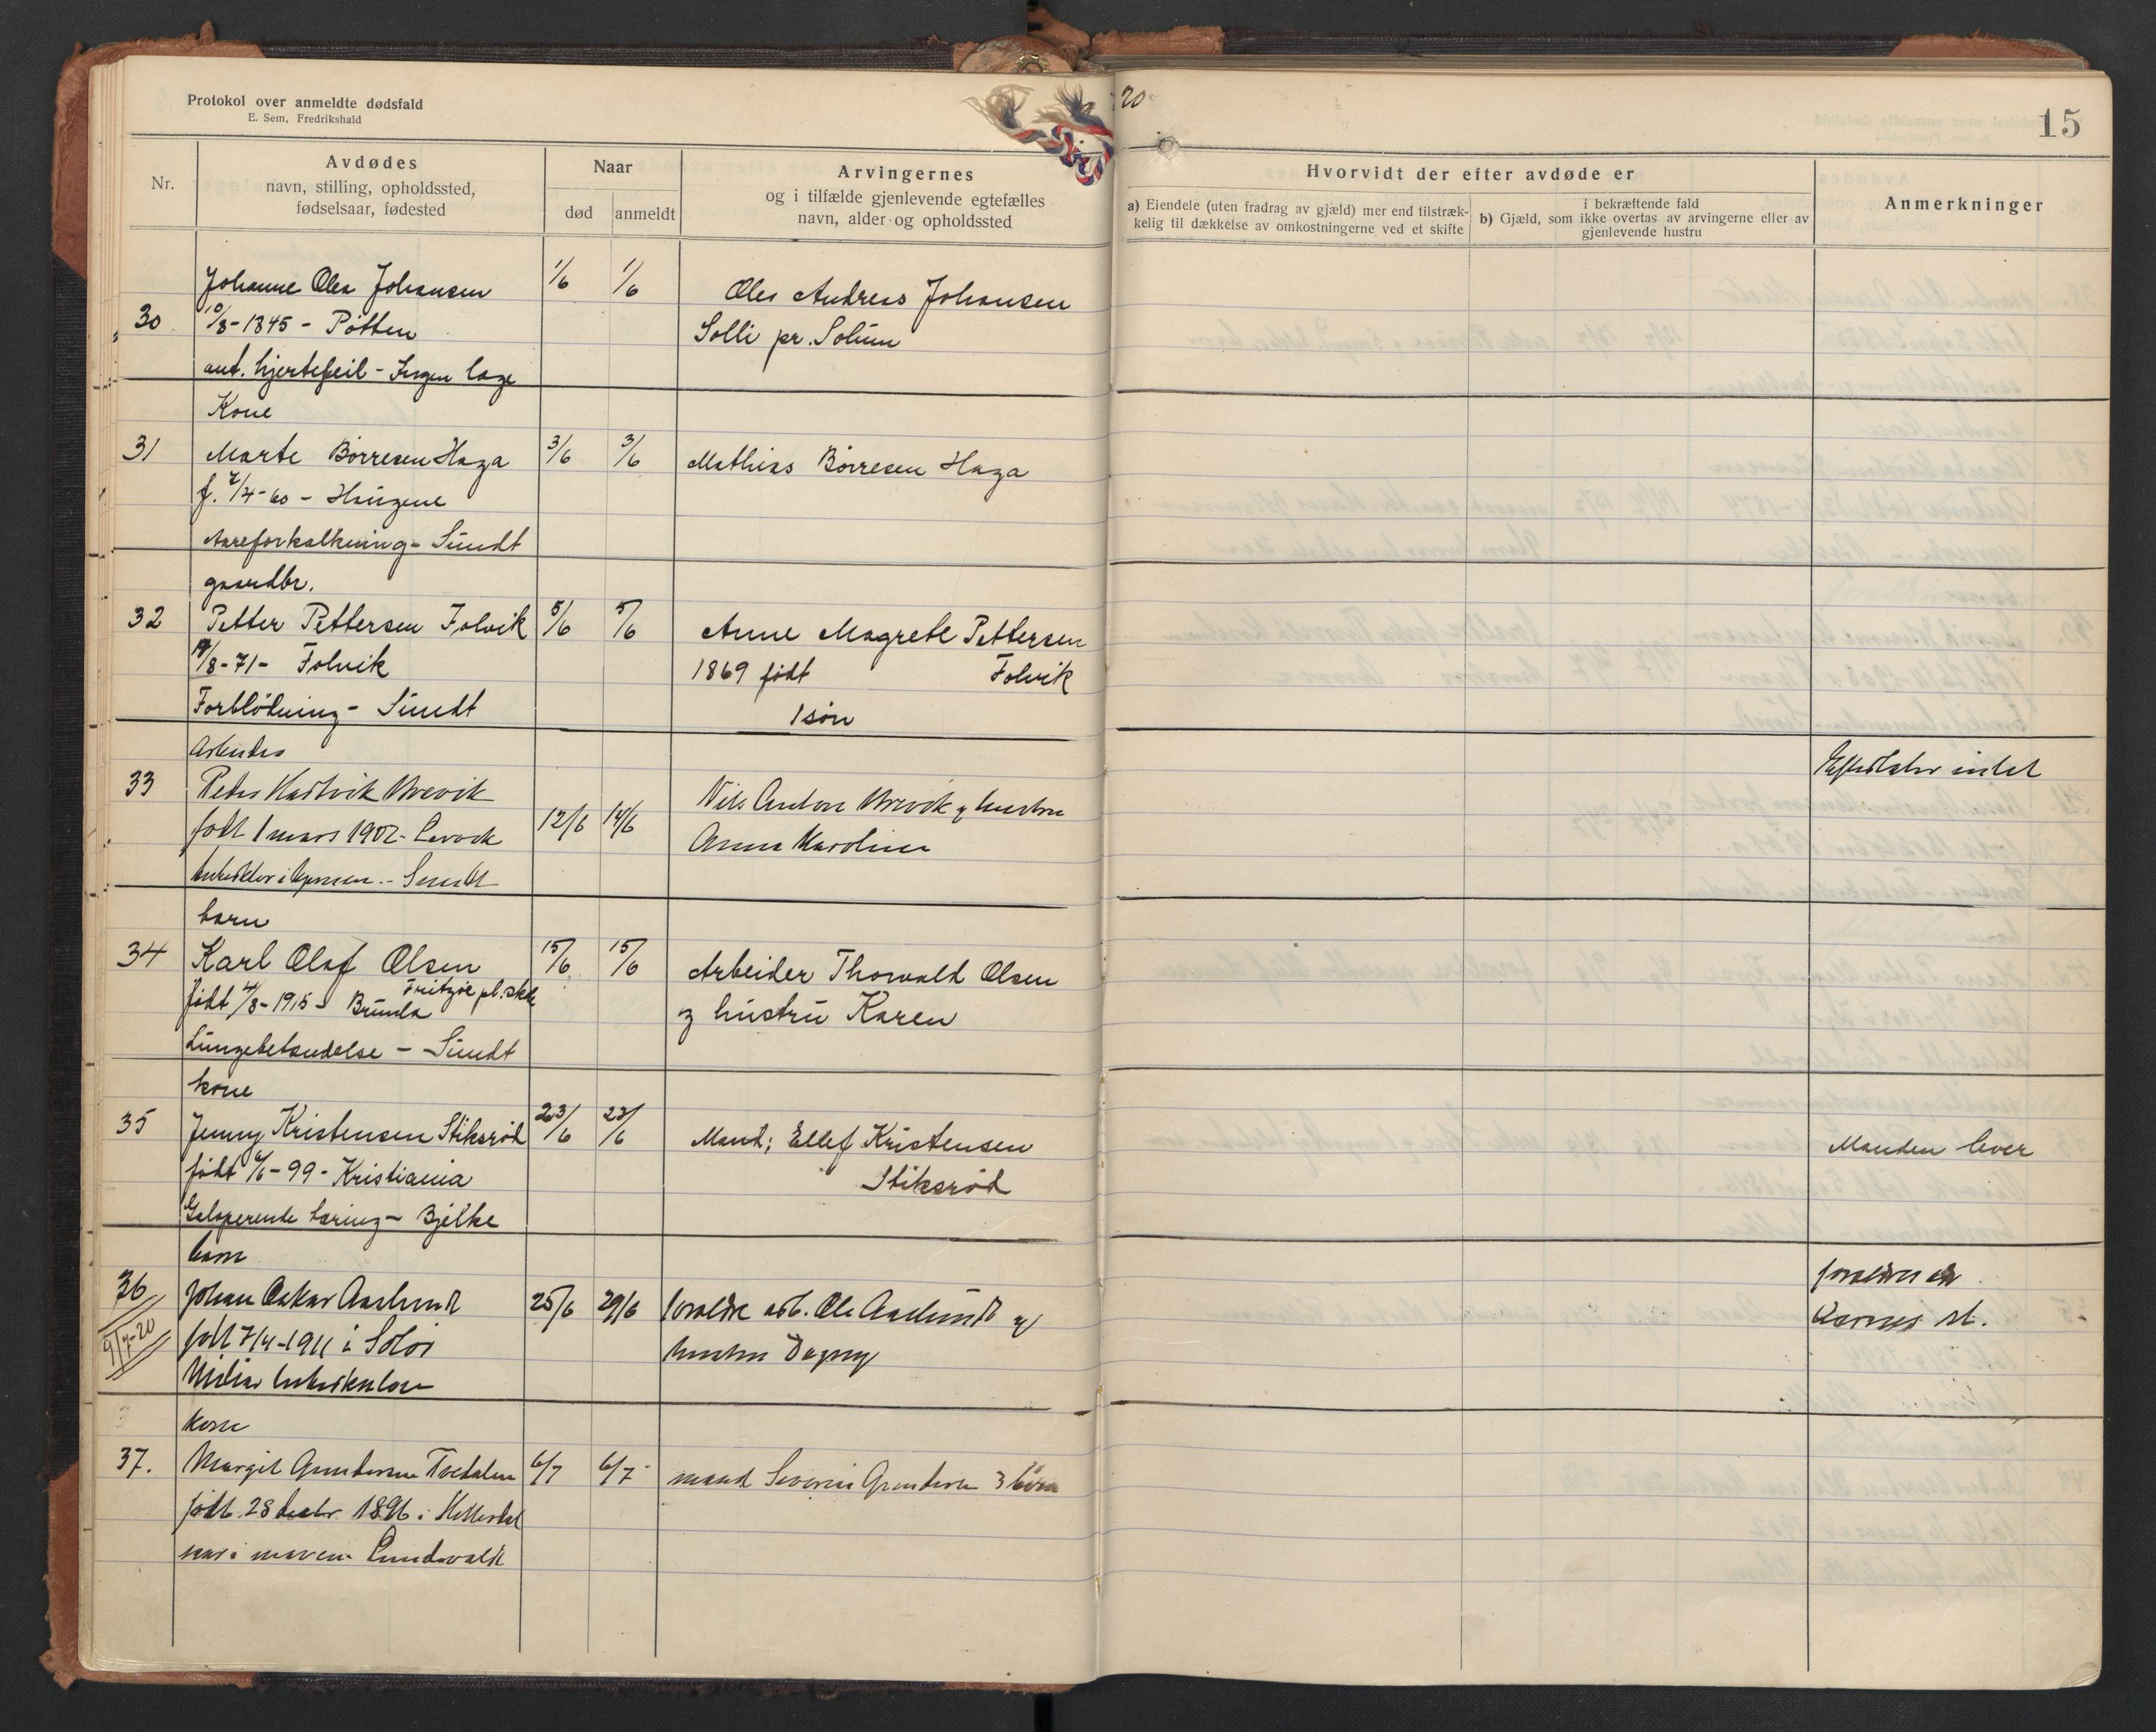 Protokol over anmeldte dødsfald
E. Sem, Fredrikshald
20
15
Nr.
Avdødes
navn, stilling, opholdssted,
fødselsaar, fødested
Naar
død
anmeldt
Arvingernes
og i tilfælde gjenlevende egtefælles
navn, alder og opholdssted
Hvorvidt der efter avdøde er
a) Eiendele (uten fradrag av gjæld) mer end tilstræk-
kelig til dækkelse av omkostningerne ved et skifte
i bekræftende fald
b) Gjæld, som ikke overtas av arvingerne eller av
gjenlevende hustru
Anmerkninger
30
Johanne Olea Johansen
10/8-1845 - Pøtten
ant. hjertefeil - Ingen læge
1/6 1/6
Ole Andreas Johansen
Solli pr. Solum
Kone
31
Marte Børresen Haga
f. 2/4-60 - Haugene
Aareforkalkning - Sundt
3/6 3/6
Mathias Børresen Haga
gaardbr.
32
Petter Pettersen Folvik
19/8-71 - Folvik
Forblødning - Sundt
5/6 5/6
Anne Magrete Pettersen
1869 født Folvik
1 søn
Arbeider
33
Peder Hartvik Brevik
født 1 mars 1902 -
- Sundt
12/6 14/6
Nils Anton Brevik og hustru
Anna Karoline
Efterlater intet
barn
34
Karl Olaf Olsen
født 4/8-1915 - Brunla Fritzøe pl.skole
Lungebetændelse - Sundt
15/6 15/6
Arbeider Thorvald Olsen
og hustru Karen
kone
35
Jenny Kristensen Stiksrød
født 6/6-99 - Kristiania
Galoperende tæring - Bjelke
23/6 23/6
Mand: Ellef Kristensen
Stiksrød
Manden lever
barn
36
9/7-20
Johan Oskar Aaslundt
født 7/4-1911 i Solør
Miliær tuberkulose
25/6 29/6
foreldre arb. Ole Aaslundt og
hustru Dagny
kone
37.
Margit Gundersen Tvedalen
født 28 decbr. 1896 i
saar i maven - Lundwaldt
6/7 6/7
mand Severin Gundersen 3 børn